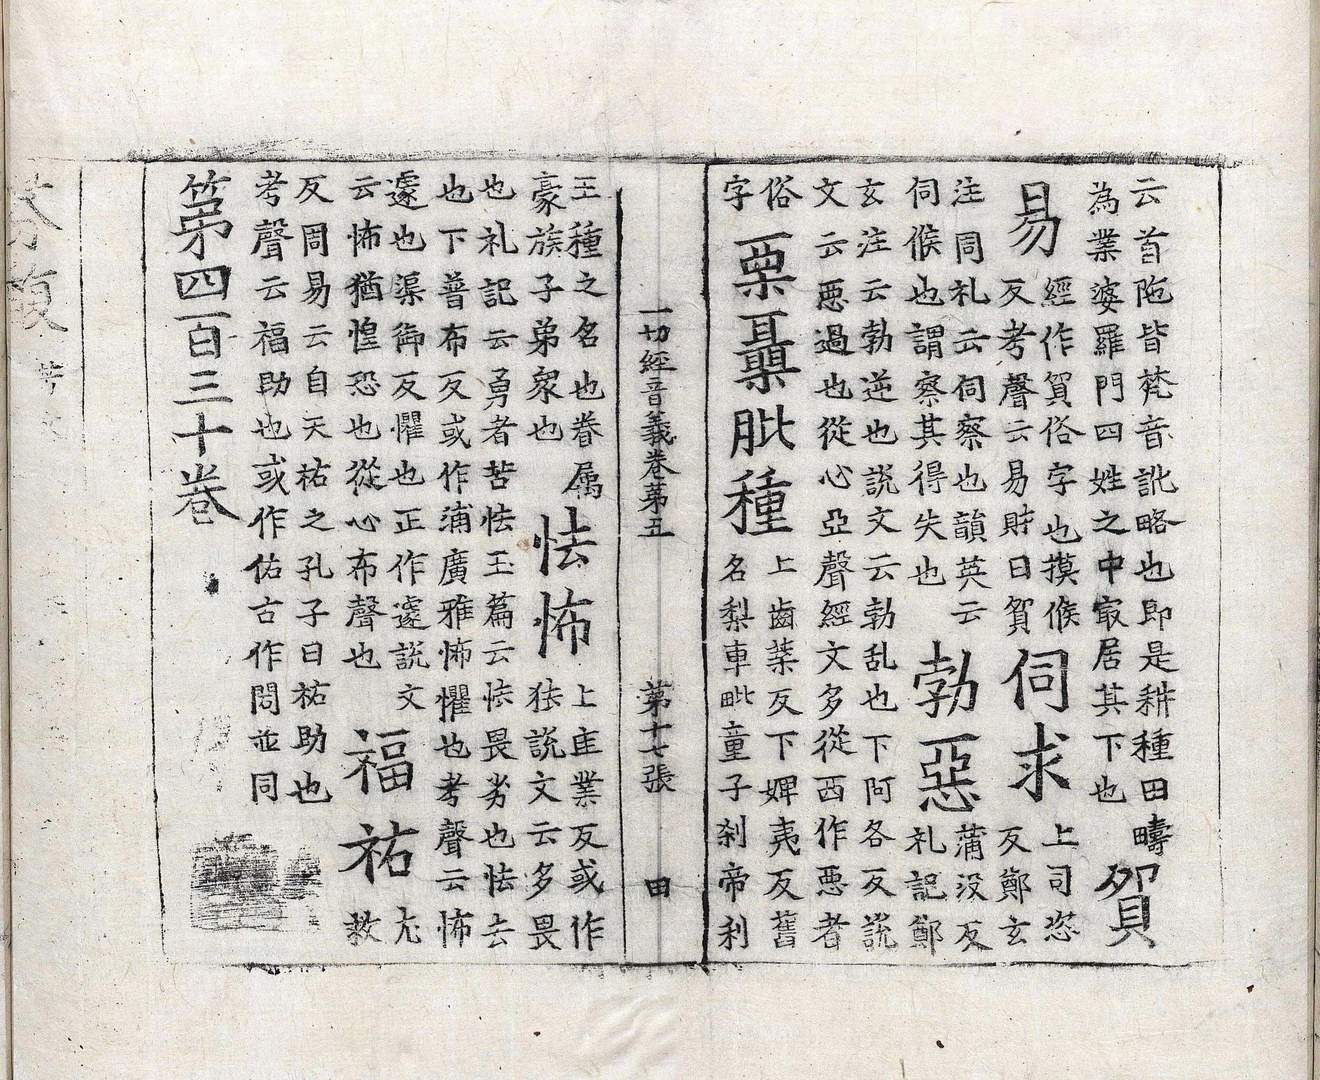 云首陁皆梵音訛略也即是耕種田疇
為業婆羅門四姓之中㝡居其下也
貿
易
經作貿俗字也摸候
反考聲云易財曰貿
伺求
上司恣
反鄭玄
注周礼云伺察也韻英云
伺候也謂察其得失也
勃惡
蒲没反
礼記鄭
玄注云勃逆也說文云勃乱也下阿各反說
文云悪過也從心亞聲經文多從西作悪者
俗
字
栗毗種
上齒葉反下婢夷反舊
名梨車毗童子刹帝利
一切經音義卷第五 第十七張 田
王種之名也眷属
豪族子弟衆也
怯怖
上業反或作
㹤說文云多畏
也礼記云勇者苦怯玉篇云怯畏劣也怯去
也下普布反或作浦廣雅怖懼也考聲云怖
遽也渠御反懼也正作遽說文
云怖猶惶恐也從心布聲也
福祐
尤
救
反周易云自天祐之孔子曰祐助也
考聲云福助也或作佑古作並同
第四百三十卷